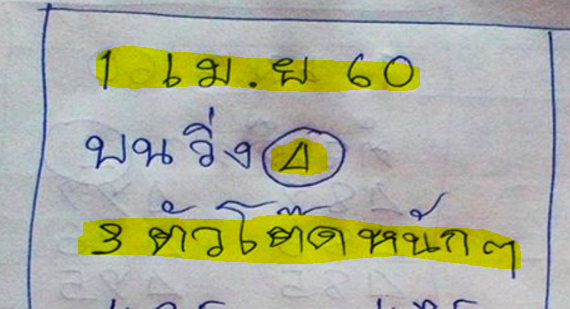 1 เม.ย 60
บน วิ่ง 4
3 ตัวโต๊ดหนักๆ